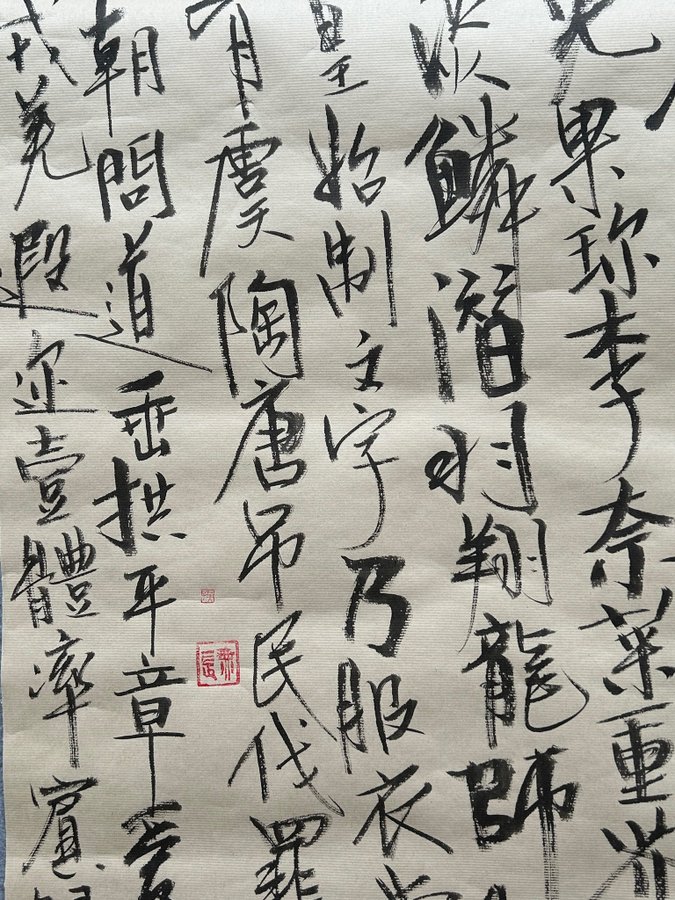 光果珍李柰菜重芥
淡鱗潛羽翔龍師
皇始制文字乃服衣裳
有虞陶唐吊民伐罪
朝問道垂拱平章愛
戎羌遐迩壹體率賓歸